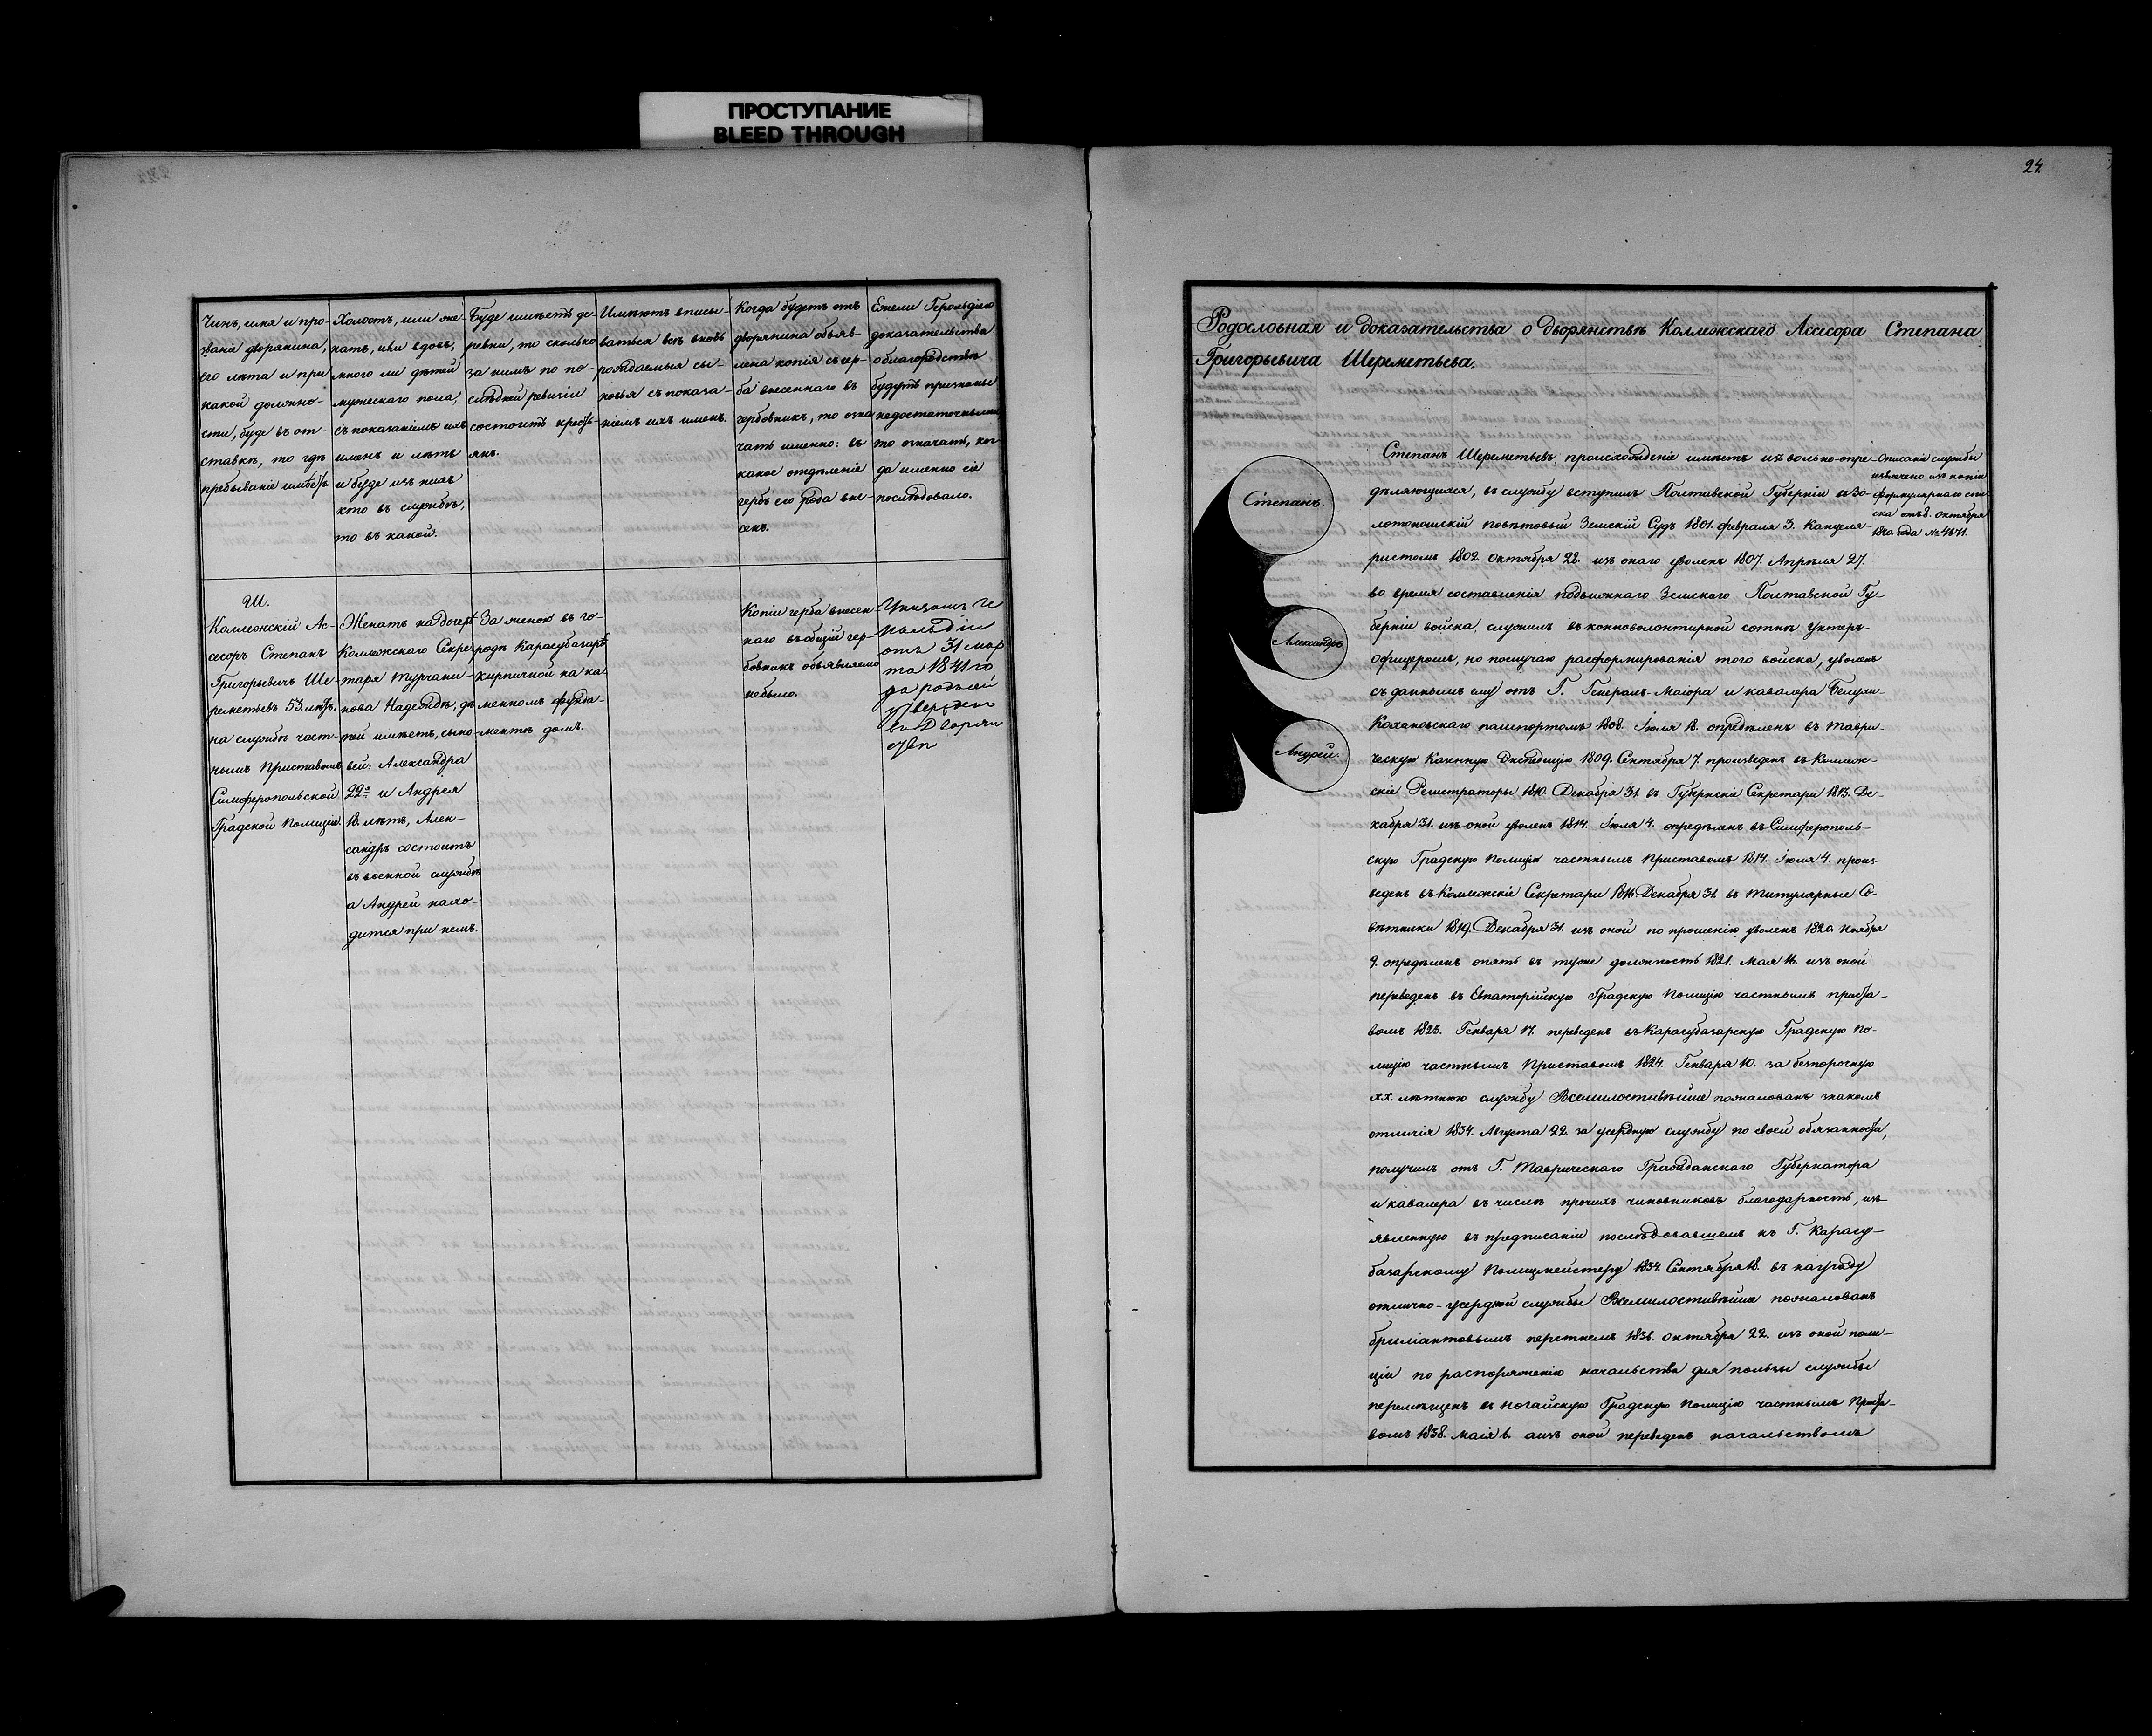 ПРОСТУПАНИЕ
BLEED THROUGH
24
Чинъ, имя и про-
званіе дворянина,
его лѣта и при
какой должно-
сти, буде въ от-
ставкѣ, то гдѣ
пребываніе имѣетъ
Холостъ, или же-
натъ, или вдовъ,
много ли дѣтей
мужескаго пола,
съ показаніемъ ихъ
именъ и лѣтъ
и буде изъ нихъ
кто въ службѣ,
то въ какой.
Буде имѣетъ де-
ревни, то сколько
за нимъ по по-
слѣдней ревизіи
состоитъ кресть-
янъ.
Имѣютъ вписы-
ваться всѣ вновь
рождаемыя сы-
новья съ показа-
ніемъ ихъ именъ.
Когда будетъ отъ
дворянина объяв-
лена копія съ гер-
ба внесеннаго въ
гербовникъ, то озна
чать именно: въ
какое отдѣленіе
гербъ его рода вне-
сенъ.
Ежели Герольдіею
доказательства
о благородствѣ
будутъ признаны
недостаточными
то означать, ког
да именно сіе
послѣдовало.
Ш.
Коллежскій Ас-
сесоръ Степанъ
Григорьевичъ Ше-
реметьевъ 53. лѣтъ,
на службѣ част-
нымъ Приставомъ
Симферопольской
Градской Полиціи.
Женатъ на дочери
Коллежскаго Секре-
таря Турчани-
нова Надеждѣ, дѣ
тей имѣетъ, сыно-
вей: Александра
22х и Андрея
18. лѣтъ, Алек-
сандръ состоитъ
въ военной службѣ
а Андрей нахо-
дится при немъ.
За женою въ го-
родѣ Карасубазарѣ
кирпичной на ка-
менномъ фунда-
ментѣ домъ.
Копіи герба внесен
наго въ общій гер-
бовникъ объявляемо
небыло.
Указомъ Ге
рольдіи
отъ 31 мар
та 1841 го
да родъ сей
утвержден
въ Дворян
ствѣ
Родословная и доказательства о дворянствѣ Коллежскаго Ассесора Степана
Григорьевича Шереметьева.
Степанъ.
Александръ
Андрей.
Степанъ Шереметьевъ происхожденіе имѣетъ изъ вольно-опре-
дѣляющихся, въ службу вступилъ Полтавской Губерніи въ Зо-
лотоношскій повѣтовый Земскій Судъ 1801. февраля 3. Канцеля-
ристомъ 1802. Октября 28. изъ онаго уволенъ 1807. Апрѣля 27.
во время составленія подвижнаго Земскаго Полтавской Гу-
берніи войска, служилъ въ конноволонтирной сотнѣ Унтеръ-
Офицеромъ, но послучаю расформированія того войска, уволенъ
съ даннымъ ему отъ Г. Генералъ-Маіора и кавалера Белухи-
Кохановскаго пашпортомъ 1808. Іюля 18. опредѣленъ въ Таври-
ческую Казенную Экспедицію 1809. Сентября 7. произведенъ въ Коллеж-
скіе Регистраторы 1810. Декабря 31. въ Губернскіе Секретари 1813. Де-
кабря 31. изъ оной уволенъ 1814. Іюля 4. опредѣленъ въ Симферополь-
скую Градскую Полицію частнымъ Приставомъ 1814. Іюля 4. произ-
веденъ въ Коллежскіе Секретари 1816. Декабря 31. въ Титулярные Со-
вѣтники 1819. Декабря 31. изъ оной по прошенію уволенъ 1820. Ноября
9. опредѣленъ опять въ туже должность 1821. Мая 16. изъ оной
переведенъ въ Евпаторійскую Градскую Полицію частнымъ приста-
вомъ 1823. Генваря 17. переведенъ въ Карасубазарскую Градскую По-
лицію частнымъ Приставомъ 1824. Генваря 10. за безпорочную
XX. лѣтнюю службу Всемилостивѣйше пожалованъ знакомъ
отличія 1834. Августа 22. за усердную службу по своей обязанности,
получилъ отъ Г. Таврическаго Гражданскаго Губернатора
и кавалера въ числѣ прочихъ чиновниковъ благодарность, изъ-
явленную въ предписаніи послѣдовавшемъ къ Г. Карасу-
базарскому Полицмейстеру 1834. Сентября 18. въ награду
отлично-усердной службы Всемилостивѣйше пожалованъ
бриліантовымъ перстнемъ 1836. Октября 22. изъ оной поли-
ціи по распоряженію начальства для пользы службы
перемѣщенъ въ Ногайскую Градскую Полицію частнымъ Приста-
вомъ 1838. Маія 6. а изъ оной переведенъ начальствомъ
Описаніе службы
извлечено изъ копіи
формулярнаго спи
ска отъ 8. октября
1840. года № 4841.